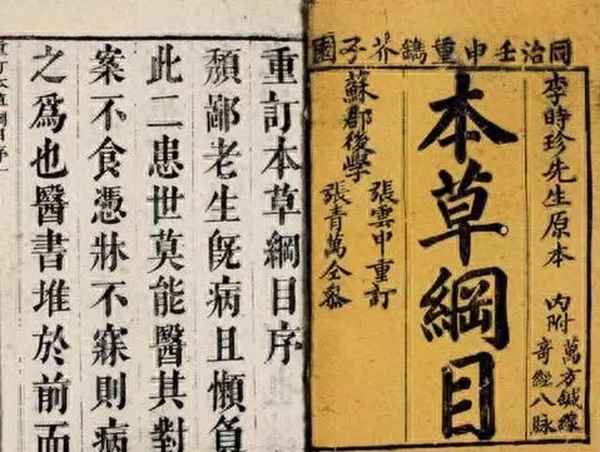 同治壬申重鐫芥子園
李時珍先生原本
內附
萬方鍼線
奇經八脉
本草綱目
張雲中重訂
張青萬仝叅
蘇郡後學
重訂本草綱目序
頽鄙老生旣病且懶負
此二患世莫能醫其對
案不食憑牀不寐則病
之為也醫書堆於前而
重訂本草綱目序